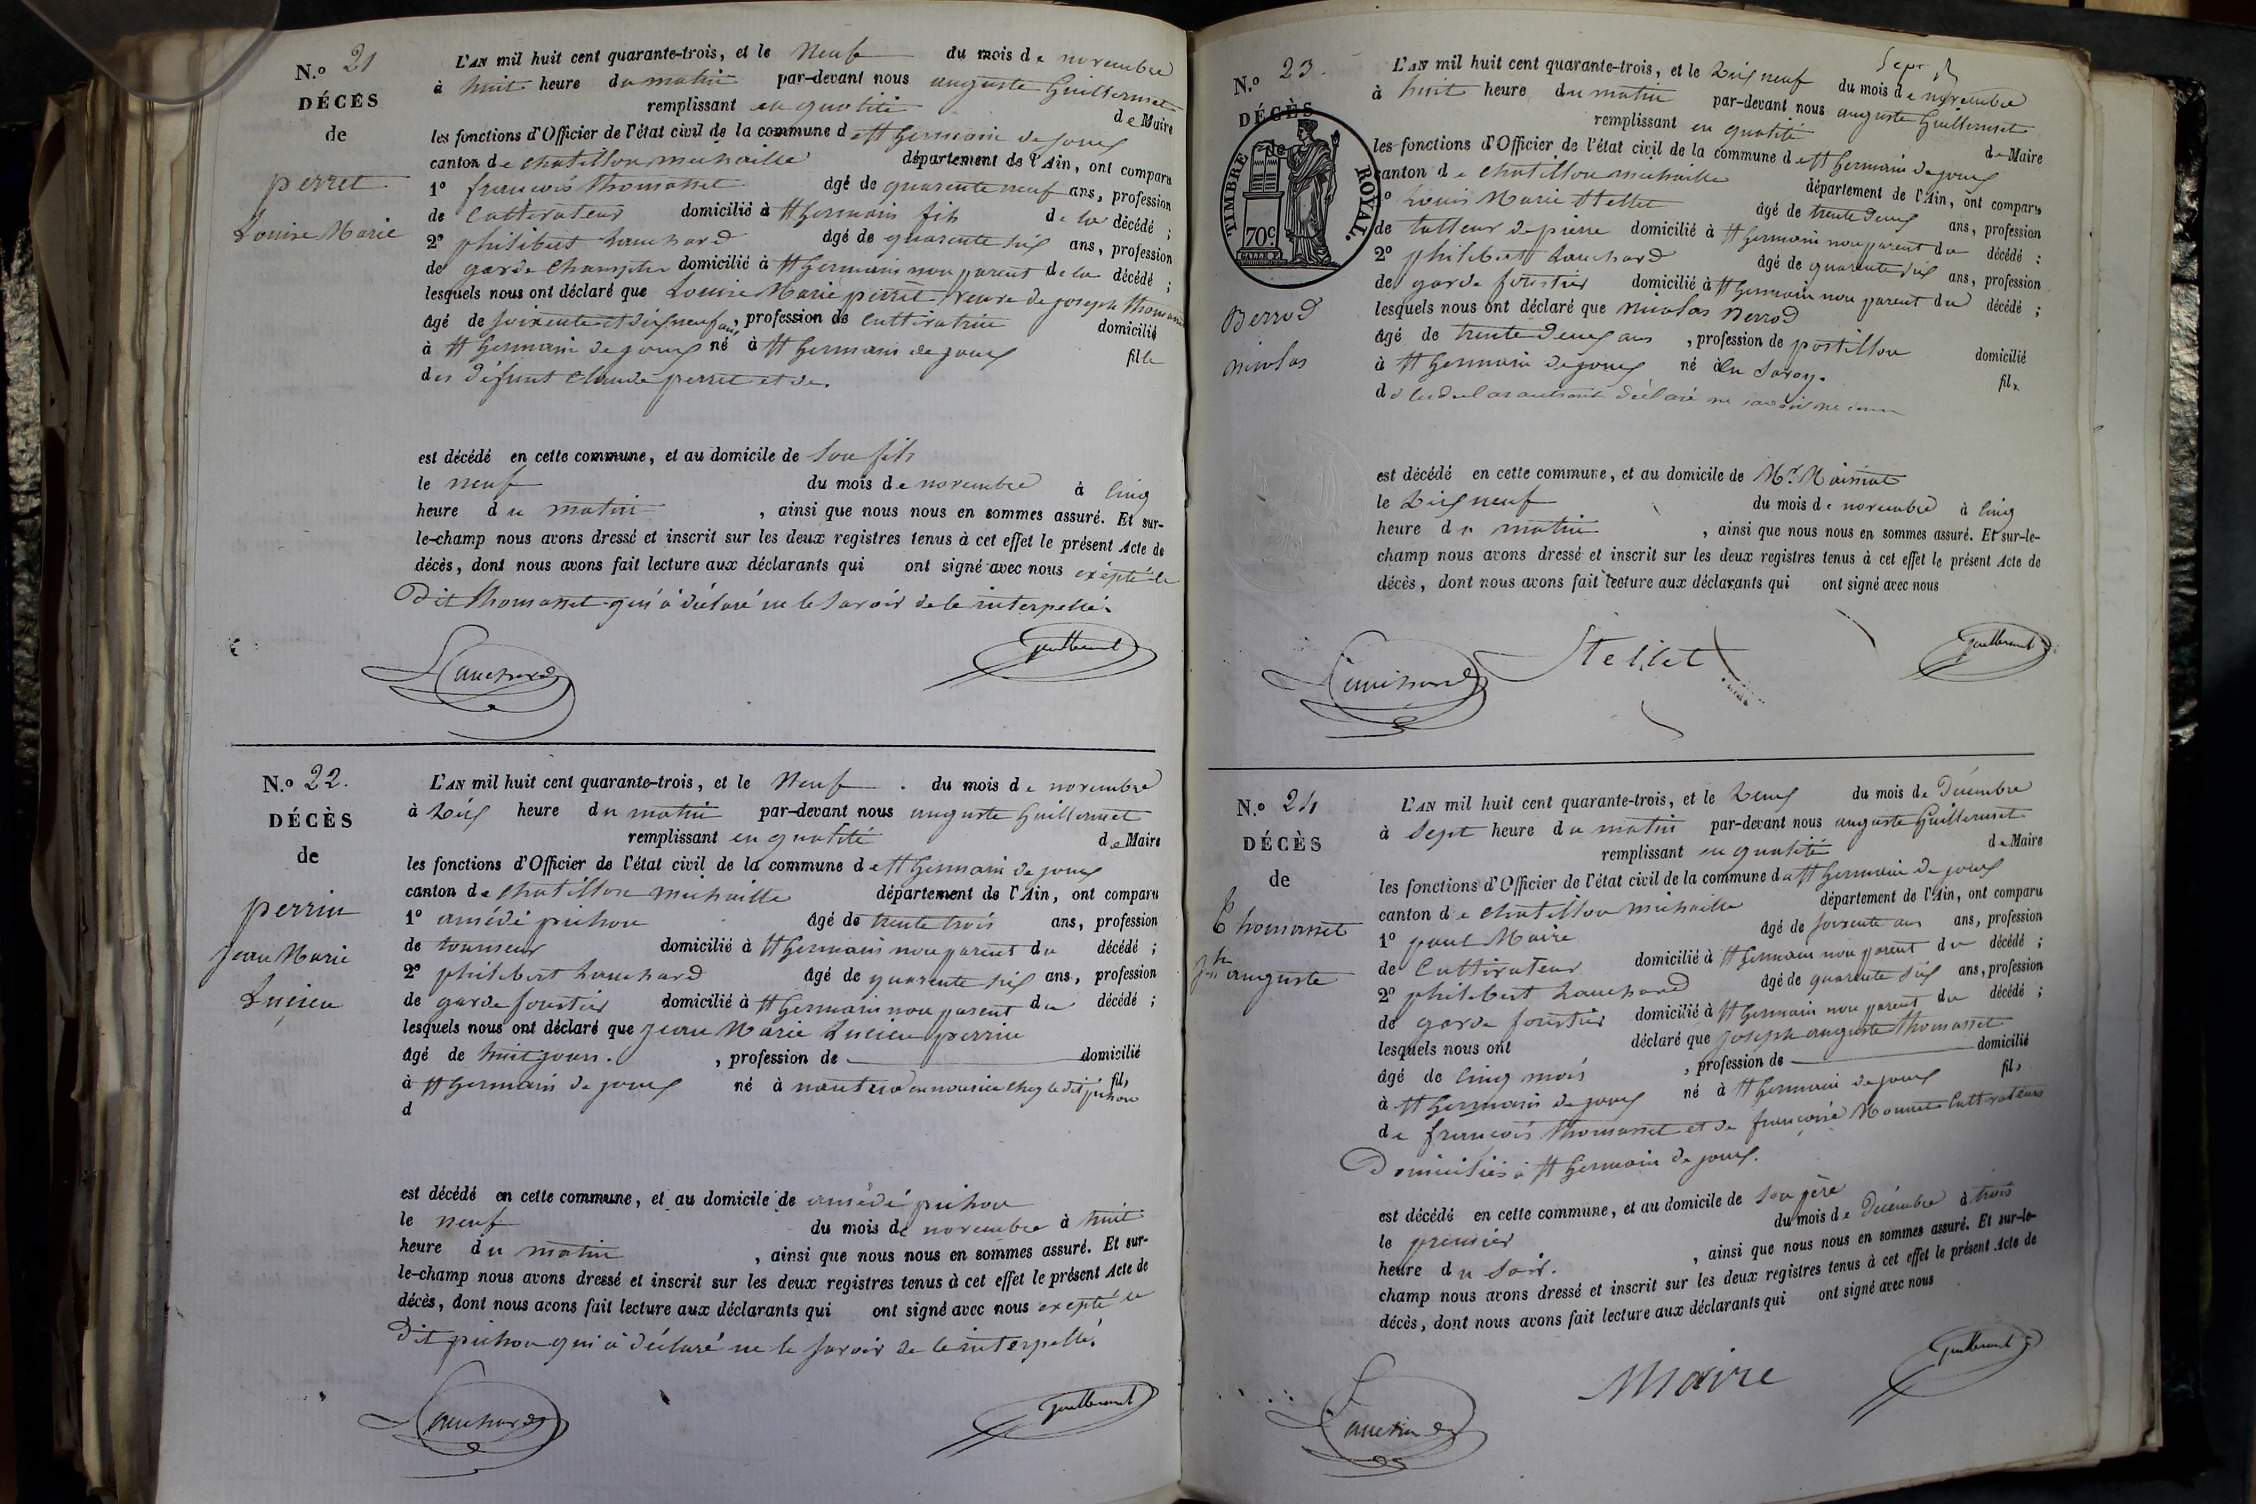 N.º 21
DÉCÈS
de
perret
Louise Marie
L'AN mil huit cent quarante-trois, et le Neuf du mois de novembre
à huit heure du matin par-devant nous auguste Guillermet
remplissant en qualité de Maire
les fonctions d'Officier de l'état civil de la commune de St Germain de joux
canton de chatillon michaille département de l'Ain, ont comparu
1º francois thomasset âgé de quarente neuf ans, profession
de Cultivateur domicilié à St Germain fils de la décédé ;
2º philibert Lanchard âgé de quarente six ans, profession
de garde Champetre domicilié à St Germain non parent de la décédé ;
lesquels nous ont déclaré que Louise Marie perret veuve de joseph thomasset
âgé de soixente et dix neuf ans, profession de Cultivatrice domicilié
à St Germain de joux né à St Germain de joux fille
des défunt Claude perret et de.
est décédé en cette commune, et au domicile de son fils
le neuf du mois de novembre à cinq
heure du matin , ainsi que nous nous en sommes assuré. Et sur-
le-champ nous avons dressé et inscrit sur les deux registres tenus à cet effet le présent Acte de
décès, dont nous avons fait lecture aux déclarants qui ont signé avec nous exépté le
Dit thomasset qui à déclaré ne le savoir de le interpellé.
Lanchard
Guillermet
N.º 22.
DÉCÈS
de
perrin
Jean Marie
Lucien
L'AN mil huit cent quarante-trois, et le Neuf du mois de novembre
à Dix heure du matin par-devant nous auguste Guillermet
remplissant en qualité de Maire
les fonctions d'Officier de l'état civil de la commune de St Germain de joux
canton de chatillon michaille département de l'Ain, ont comparu
1º amédé puthon âgé de trente trois ans, profession
de tourneur domicilié à St Germain non parent du décédé ;
2º philibert Lanchard âgé de quarente six ans, profession
de garde forestier domicilié à St Germain non parent du décédé ;
lesquels nous ont déclaré que jean Marie Lucien perrin
âgé de huit jours. , profession de domicilié
à St Germain de joux né à nantua en nourice chez le dit puthon fils
d
est décédé en cette commune, et au domicile de amédé puthon
le neuf du mois de novembre à huit
heure du matin , ainsi que nous nous en sommes assuré. Et sur-
le-champ nous avons dressé et inscrit sur les deux registres tenus à cet effet le présent Acte de
décès, dont nous avons fait lecture aux déclarants qui ont signé avec nous exepté le
Dit puthon qui à déclaré ne le savoir de le interpellé.
Lanchard
Guillermet
N.º 23.
DÉCÈS
de
TIMBRE ROYAL.
70c.
Berrod
nicolas
L'AN mil huit cent quarante-trois, et le Dix neuf du mois de novembre
à huit heure du matin par-devant nous auguste Guillermet
remplissant en qualité de Maire
les fonctions d'Officier de l'état civil de la commune de St Germain de joux
canton de chatillon michaille département de l'Ain, ont comparu
1º Louis Marie Stellet âgé de trente deux ans, profession
de tailleur de pierre domicilié à St Germain non parent du décédé ;
2º philibert Lanchard âgé de quarente six ans, profession
de garde forestier domicilié à St Germain non parent du décédé ;
lesquels nous ont déclaré que nicolas Berrod
âgé de trente deux ans , profession de postillon domicilié
à St Germain de joux né à en Savoy. fils
de les declarants ont déclaré ne
est décédé en cette commune, et au domicile de Mr.
le Dix neuf du mois de novembre à cinq
heure du matin , ainsi que nous nous en sommes assuré. Et sur-le-
champ nous avons dressé et inscrit sur les deux registres tenus à cet effet le présent Acte de
décès, dont nous avons fait lecture aux déclarants qui ont signé avec nous
Lanchard
Stellet
Guillermet
N.º 24
DÉCÈS
de
Thomasset
jph auguste
L'AN mil huit cent quarante-trois, et le Deux du mois de Décembre
à Sept heure du matin par-devant nous auguste Guillermet
remplissant en qualité de Maire
les fonctions d'Officier de l'état civil de la commune de St Germain de joux
canton de chatillon michaille département de l'Ain, ont comparu
1º paul Maire âgé de soixente ans ans, profession
de Cultivateur domicilié à St Germain non parent du décédé ;
2º philibert Lanchard âgé de quarente six ans, profession
de garde forestier domicilié à St Germain non parent du décédé ;
lesquels nous ont déclaré que joseph auguste thomasset
âgé de cinq mois , profession de domicilié
à St Germain de joux né à St Germain de joux fils
de francois thomasset et de francoise Monnet Cultivateurs
Domiciliés à St Germain de joux.
est décédé en cette commune, et au domicile de son père
le premier du mois de Décembre à trois
heure du soir. , ainsi que nous nous en sommes assuré. Et sur-le-
champ nous avons dressé et inscrit sur les deux registres tenus à cet effet le présent Acte de
décès, dont nous avons fait lecture aux déclarants qui ont signé avec nous
Lanchard
Maire
Guillermet